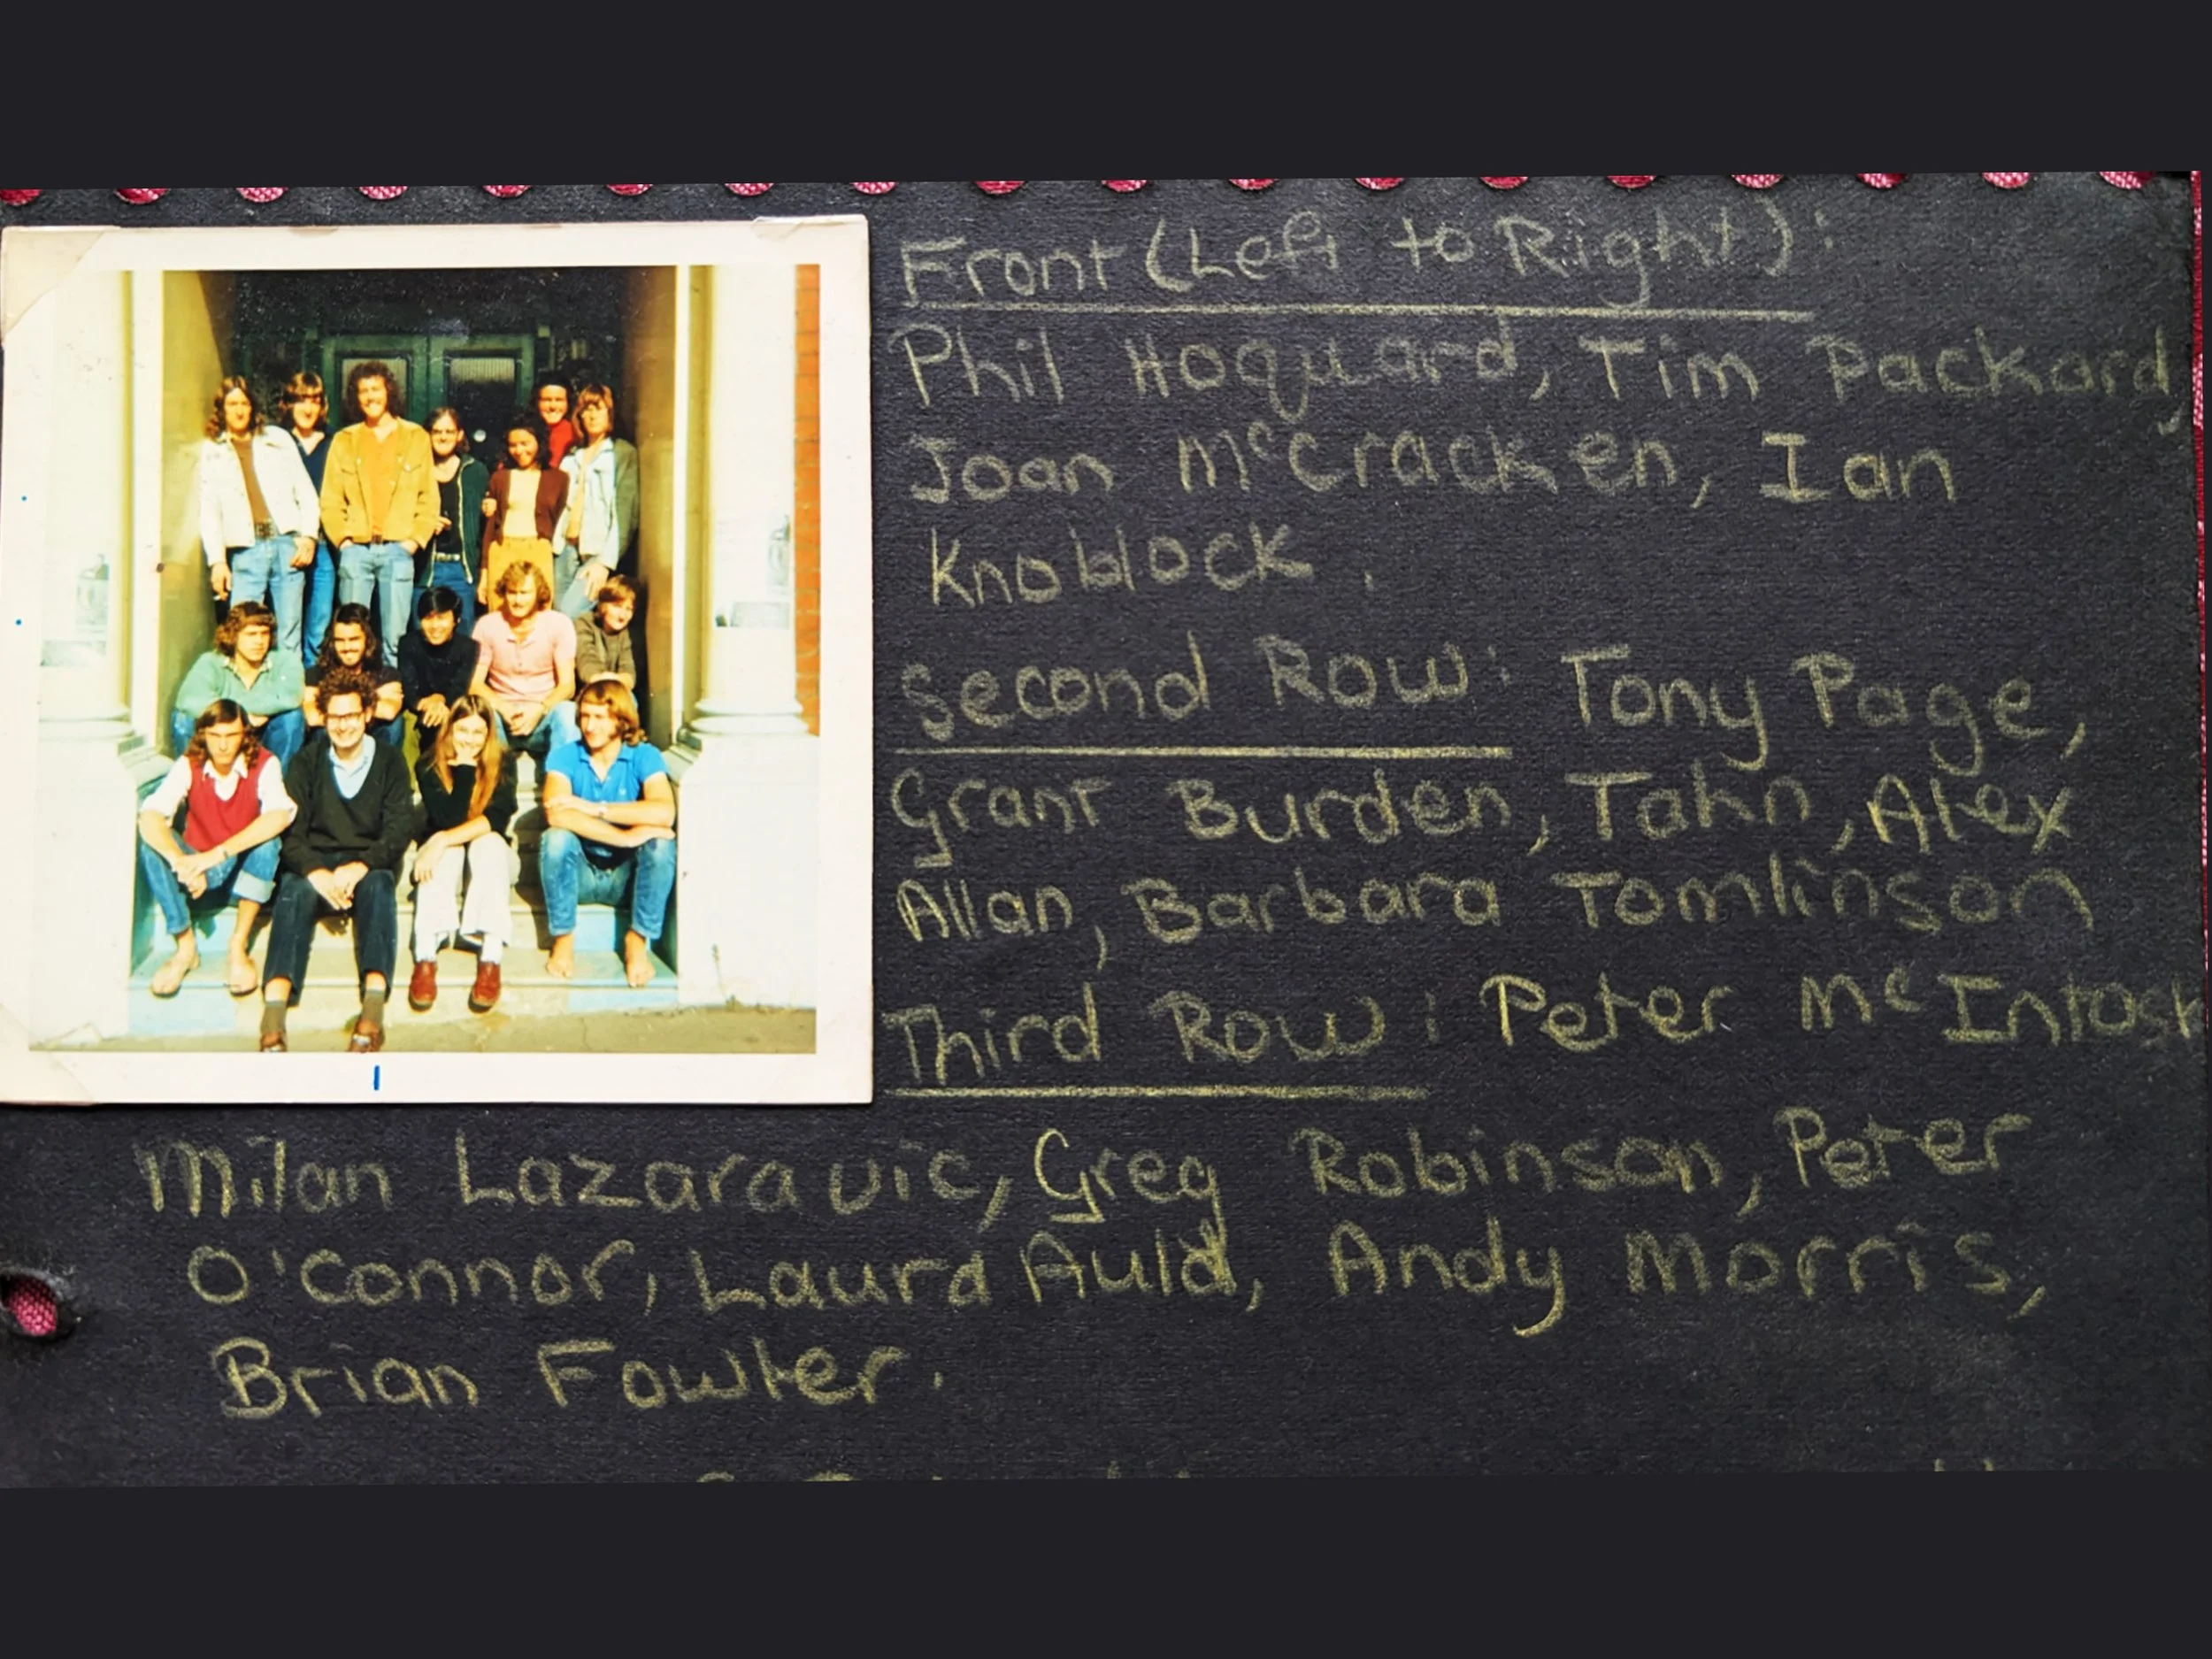 Front (Left to Right):
Phil Hoquard, Tim Packard,
Joan McCracken, Ian
Knoblock.
Second Row: Tony Page,
Grant Burden, Tahn, Alex
Allan, Barbara Tomlinson
Third Row: Peter McIntosh
Milan Lazaravic, Greg Robinson, Peter
O'Connor, Laura Auld, Andy Morris,
Brian Fowler.